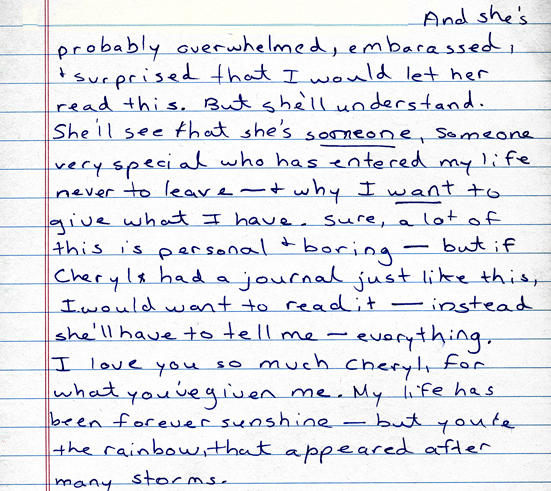 And she's
probably overwhelmed, embarassed,
+ surprised that I would let her
read this. But she'll understand.
She'll see that she's someone, someone
very special who has entered my life
never to leave — + why I want to
give what I have. Sure, a lot of
this is personal + boring — but if
Cheryl had a journal just like this,
I would want to read it — instead
she'll have to tell me — everything.
I love you so much Cheryl, for
what you've given me. My life has
been forever sunshine — but you're
the rainbow, that appeared after
many storms.